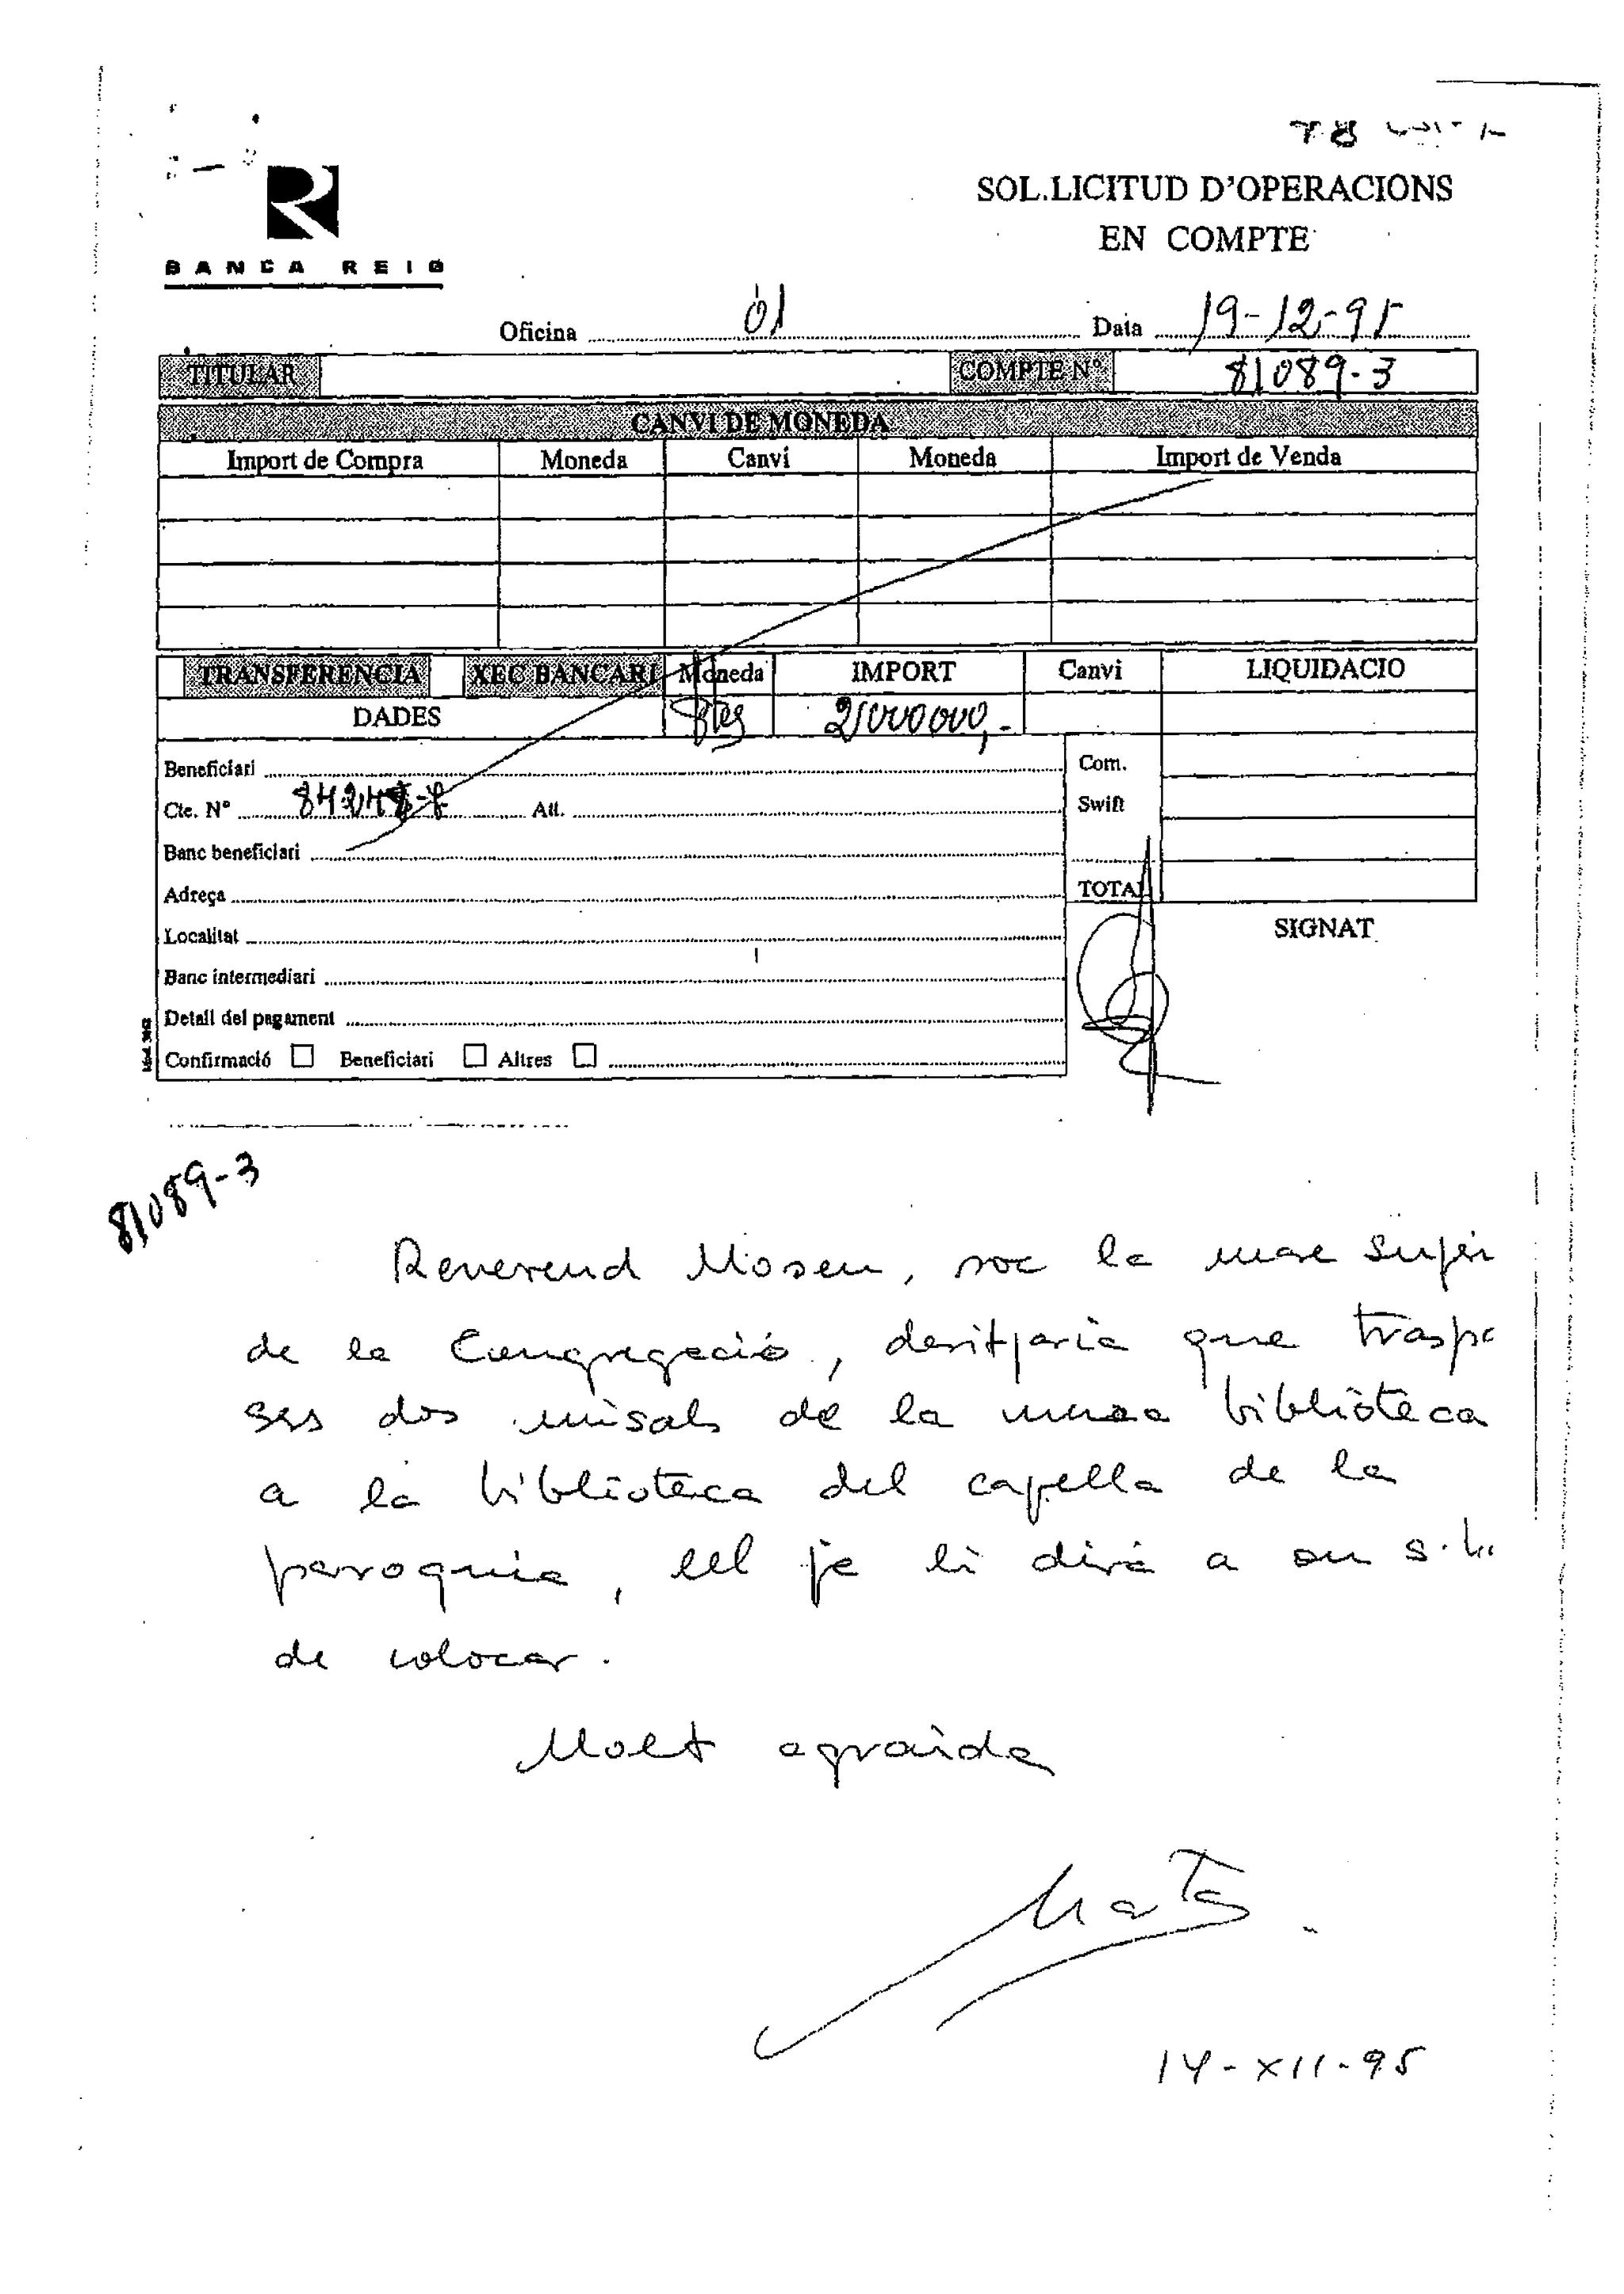 SOL.LICITUD D'OPERACIONS
EN COMPTE
BANCA REIG
Oficina 01 Data 19-12-95
TITULAR COMPTE Nº 81089-3
CANVI DE MONEDA
Import de Compra Moneda Canvi Moneda Import de Venda
TRANSFERENCIA XEC BANCARI Moneda IMPORT Canvi LIQUIDACIO
DADES Ptes 2000000,-
Beneficiari Com.
Cte. Nº Att. Swift
Banc beneficiari
Adreça TOTAL
Localitat SIGNAT
Banc intermediari
Detall del pagament
Confirmació Beneficiari Altres
Mod. 3062
81089-3
Reverend Mosen, soc la mare Super
de la Congregació, desitjaria que traspa
ses dos misals de la meva biblioteca
a la biblioteca del capella de la
parroquia, ell ja li dirà a on s.
de colocar.
Molt agraida
Marta
14-XII-95